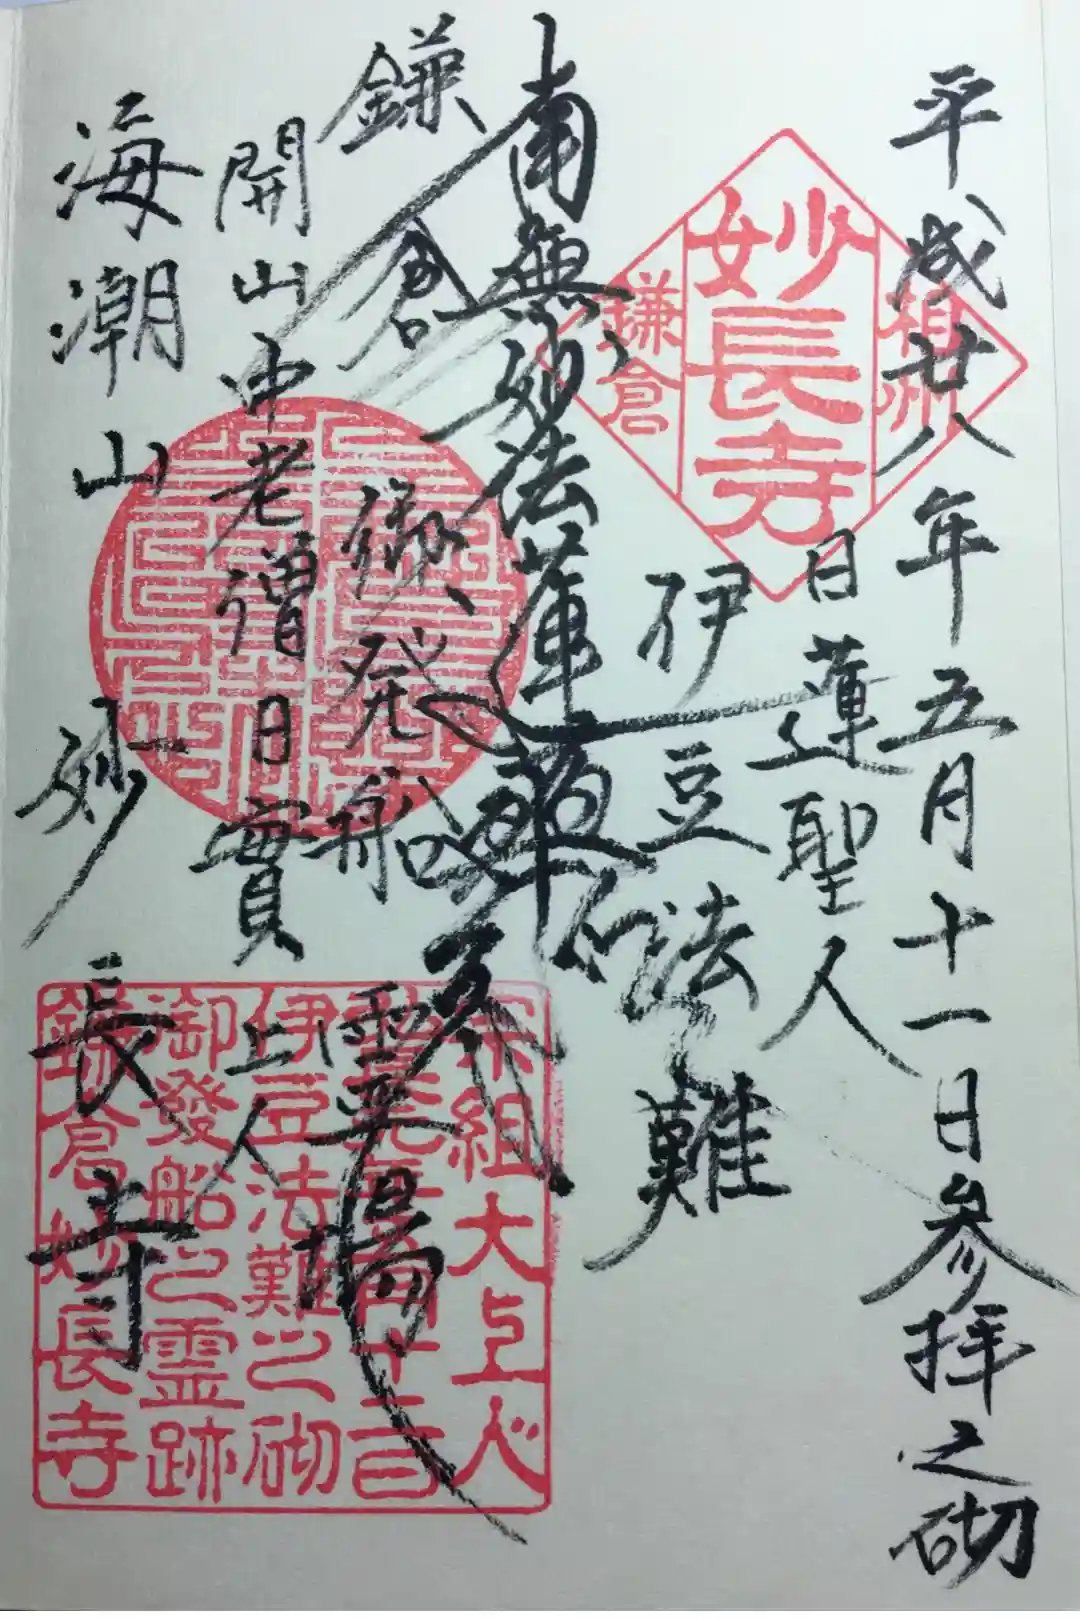 平成廿八年五月十一日参拝之砌
日蓮聖人
伊豆法難
南無妙法蓮華経
鎌倉御発船霊場
開山中老僧日實上人
海潮山妙長寺
相州
妙長寺
鎌倉
宗祖大上人
伊豆法難之砌
御發船之霊跡
鎌倉妙長寺